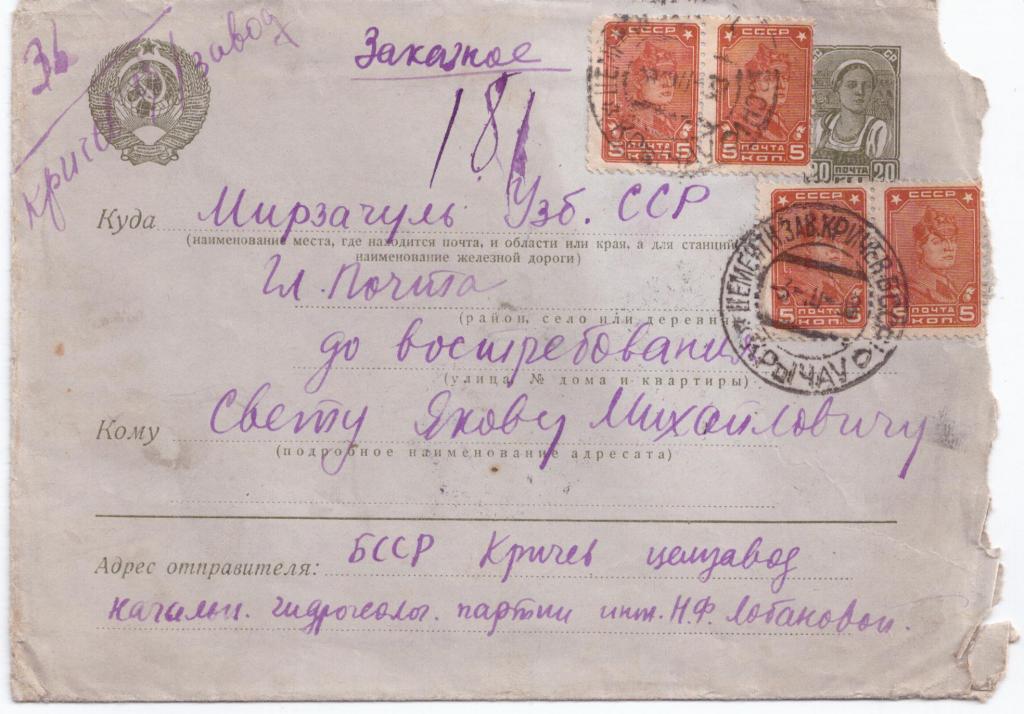 Зк
Кричев цзавод
Заказное
181
СССР СССР
5 ПОЧТА КОП. 5 5 ПОЧТА КОП. 5
20 ПОЧТА 20
СССР СССР
5 ПОЧТА КОП. 5 5 ПОЧТА КОП. 5
ЦЕМЕНТН. ЗАВ. КРИЧЕВ
КРЫЧАУ
Куда Мирзачуль Узб. ССР
(наименование места, где находится почта, и области или края, а для станций
наименование железной дороги)
Гл. Почта
(район, село или деревня
до востребования
(улица, № дома и квартиры)
Кому Свету Якову Михайловичу
(подробное наименование адресата)
Адрес отправителя: БССР Кричев цемзавод
начальн. гидрогеолог. партии инж. Н.Ф. Лобановой.